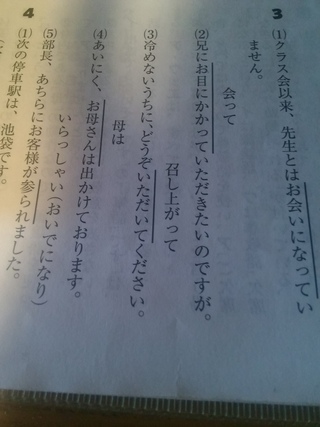 3
(1)クラス会以来、先生とはお会いになってい
ません。
会って
(2)兄にお目にかかっていただきたいのですが。
召し上がって
(3)冷めないうちに、どうぞいただいてください。
母は
(4)あいにく、お母さんは出かけております。
いらっしゃい(おいでになり)
(5)部長、あちらにお客様が参られました。
4
(1)次の停車駅は、池袋です。